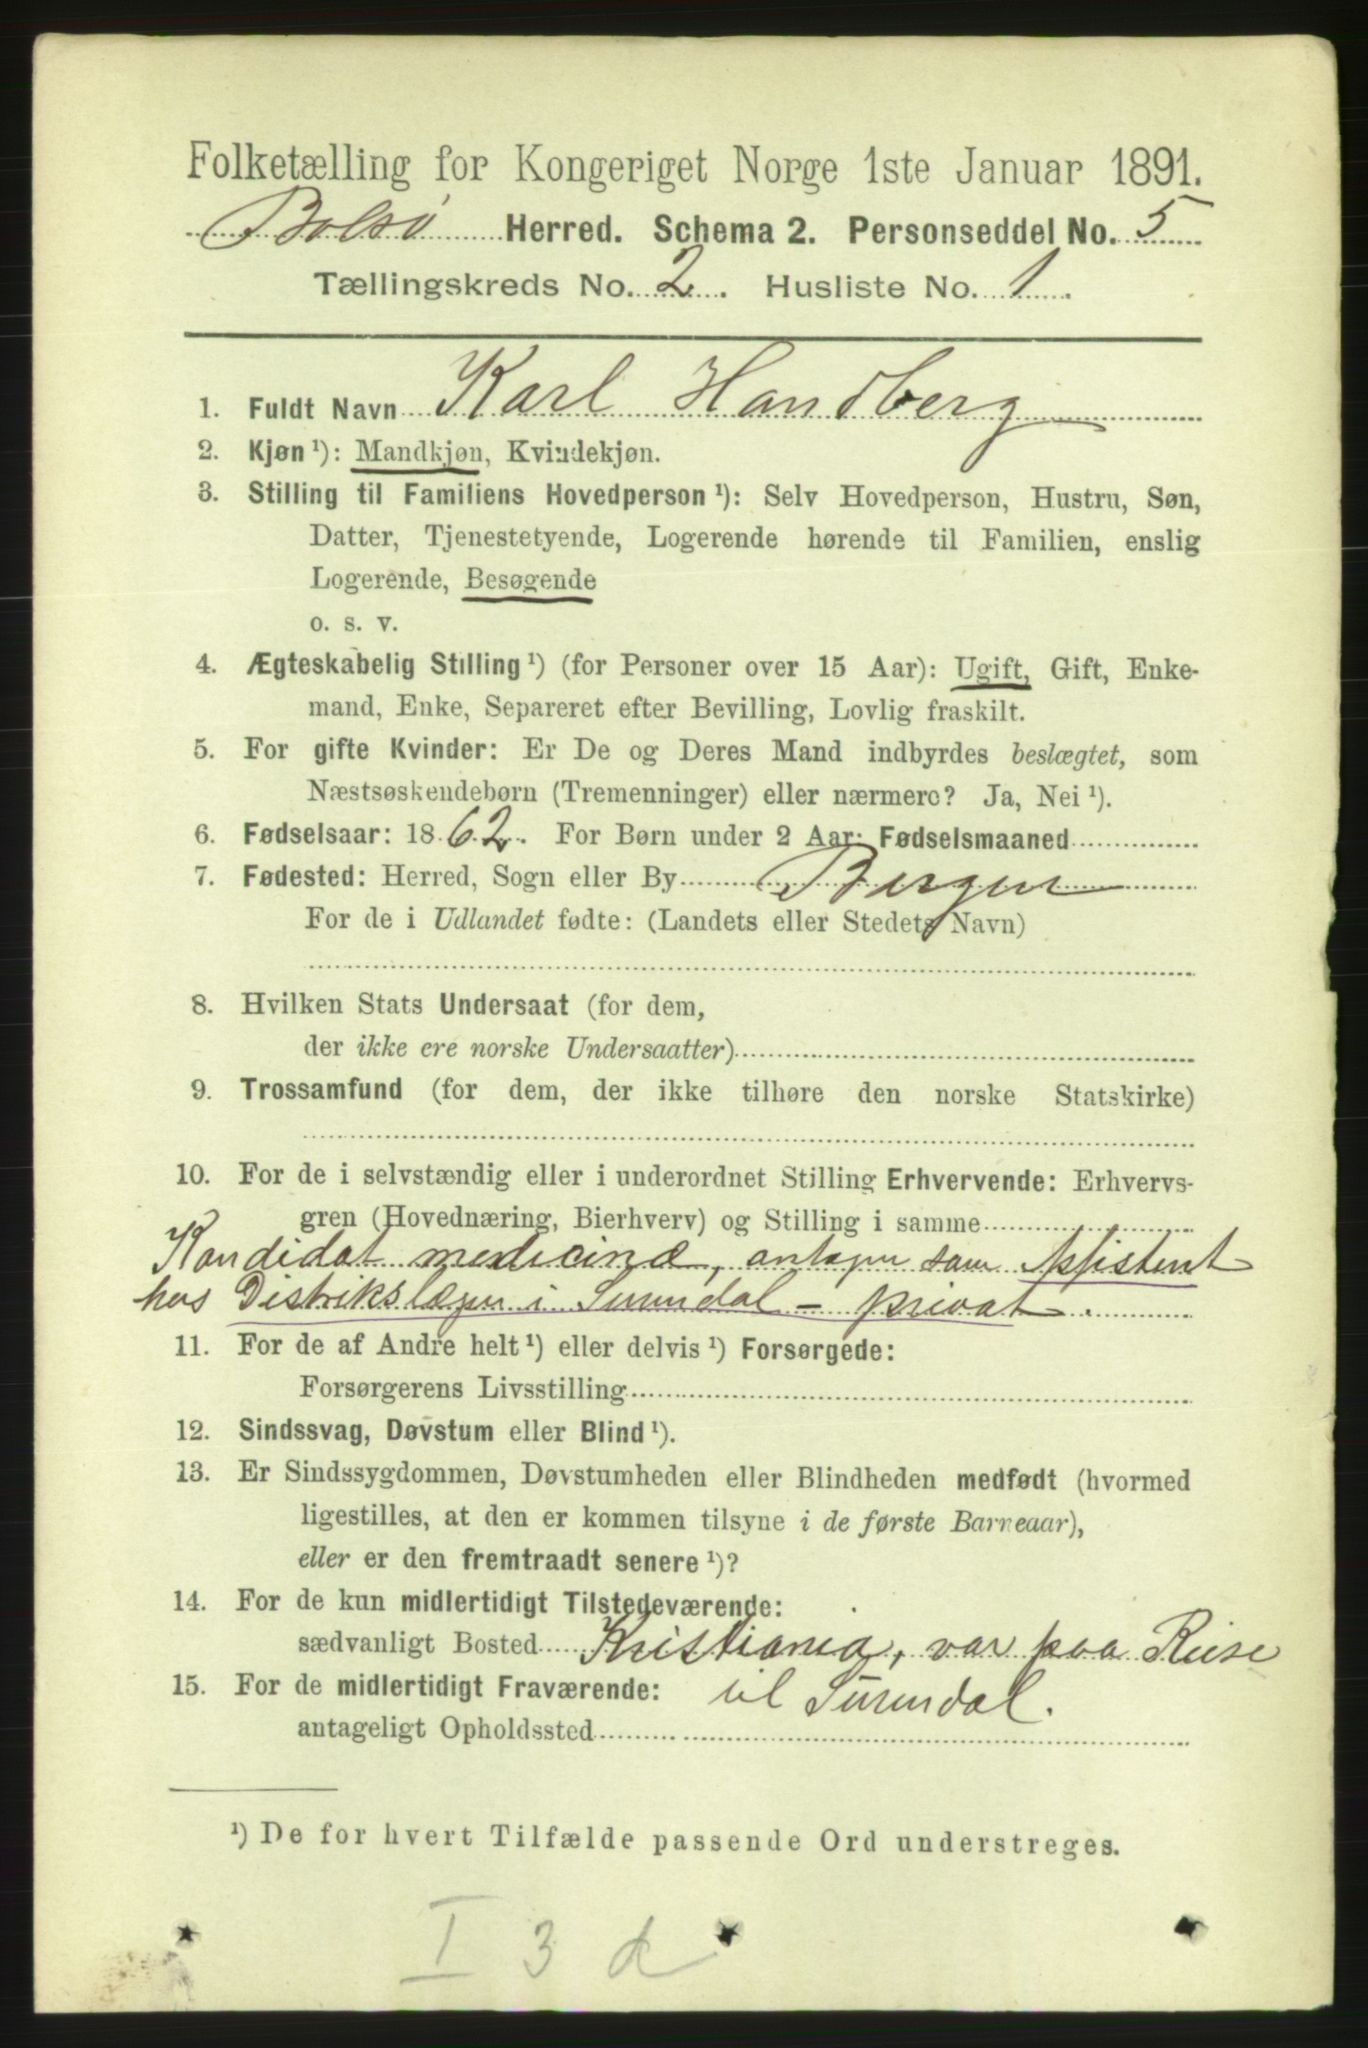 Folketælling for Kongeriget Norge 1ste Januar 1891.
Bolsø Herred. Schema 2. Personseddel No. 5
Tællingskreds No. 2. Husliste No. 1.
1. Fuldt Navn Karl Handberg
2. Kjøn ¹): Mandkjøn, Kvindekjøn.
3. Stilling til Familiens Hovedperson ¹): Selv Hovedperson, Hustru, Søn,
Datter, Tjenestetyende, Logerende hørende til Familien, enslig
Logerende, Besøgende
o. s. v.
4. Ægteskabelig Stilling ¹) (for Personer over 15 Aar): Ugift, Gift, Enke-
mand, Enke, Separeret efter Bevilling, Lovlig fraskilt.
5. For gifte Kvinder: Er De og Deres Mand indbyrdes beslægtet, som
Næstsøskendebørn (Tremenninger) eller nærmere? Ja, Nei ¹).
6. Fødselsaar: 1862. For Børn under 2 Aar: Fødselsmaaned
7. Fødested: Herred, Sogn eller By Bergen
For de i Udlandet fødte: (Landets eller Stedets Navn)
8. Hvilken Stats Undersaat (for dem,
der ikke ere norske Undersaatter)
9. Trossamfund (for dem, der ikke tilhøre den norske Statskirke)
10. For de i selvstændig eller i underordnet Stilling Erhvervende: Erhvervs-
gren (Hovednæring, Bierhverv) og Stilling i samme
Kandidat medicinæ, antagen som Assistent
hos Distrikslægen i Surendal – privat.
11. For de af Andre helt ¹) eller delvis ¹) Forsørgede:
Forsørgerens Livsstilling
12. Sindssvag, Døvstum eller Blind ¹).
13. Er Sindssygdommen, Døvstumheden eller Blindheden medfødt (hvormed
ligestilles, at den er kommen tilsyne i de første Barneaar),
eller er den fremtraadt senere ¹)?
14. For de kun midlertidigt Tilstedeværende:
sædvanligt Bosted Kristiania, var paa Reise
15. For de midlertidigt Fraværende: til Surendal.
antageligt Opholdssted
¹) De for hvert Tilfælde passende Ord understreges.
I 3 d